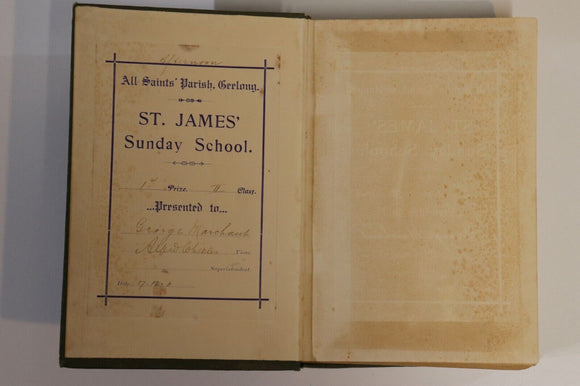 afternoon
All Saints' Parish, Geelong.
ST. JAMES'
Sunday School.
1st Prize. II Class.
...Presented to...
George Marchant
Alfred
Superintendent.